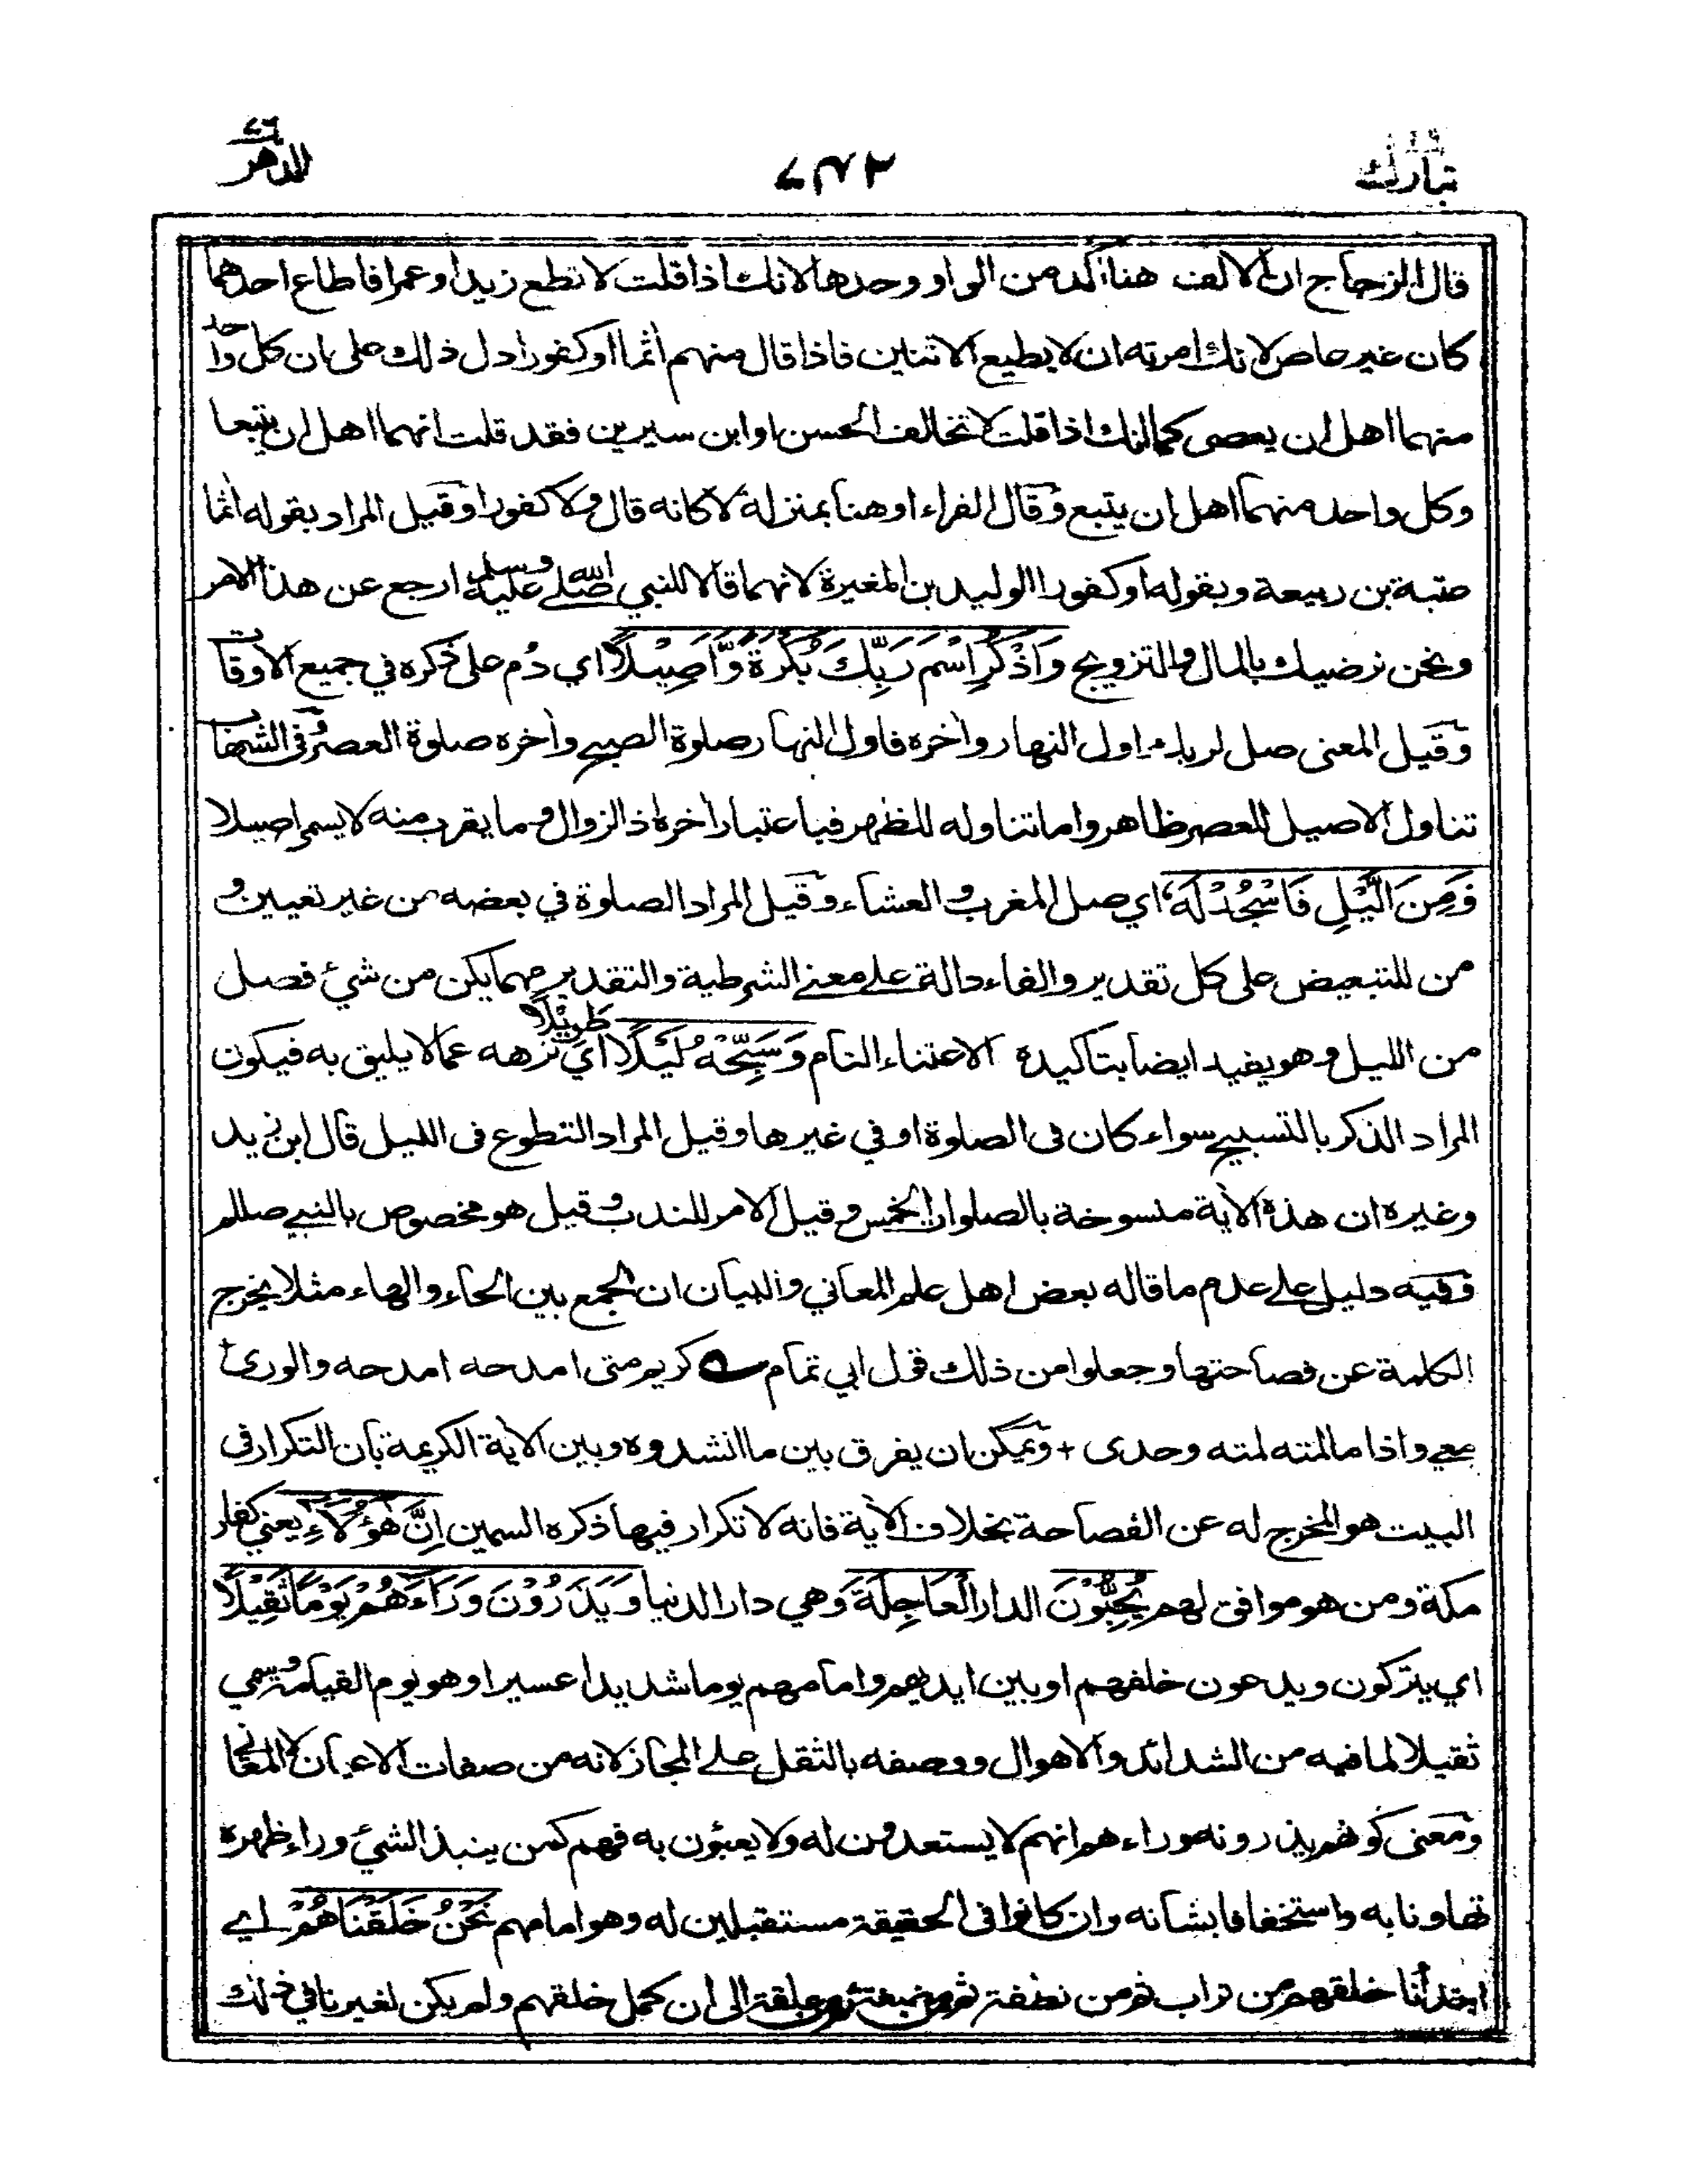 تبارك ٢٩
٧٤٢
الدهر ٧٦
قال الزجاج ان الالف هنا آكد من الواو وحدها لانك اذا قلت لا تطع زيدا وعمرا فاطاع احدهما
كان غير عاص لانك امرته ان لا يطيع الاثنين فاذا قال منهم اٰثما او كفورا دل ذلك على ان كل واحد
منهما اهل ان يعصى كما انك اذا قلت لا تخالف الحسن او ابن سيرين فقد قلت انهما اهل ان يتبعا
وكل واحد منهما اهل ان يتبع وقال الفراء او هنا بمنزلة لا كانه قال ولا كفورا وقيل المراد بقوله اٰثما
عتبة بن ربيعة وبقوله او كفورا الوليد بن المغيرة لانهما قالا للنبي صلى الله عليه وسلم ارجع عن هذا الامر
ونحن نرضيك بالمال والتزويج وَاذْكُرِ اسْمَ رَبِّكَ بُكْرَةً وَّاَصِيْلًا اي دُم على ذكره في جميع الاوقات
وقيل المعنى صل لربك اول النهار واٰخره فاول النهار صلوة الصبح واٰخره صلوة العصر وفى الشهاب
تناول الاصيل للعصر ظاهر واما تناوله للظهر فباعتبار اٰخره اذ الزوال وما يقرب منه لا يسمى اصيلا
وَمِنَ الَّيْلِ فَاسْجُدْ لَهٗ اي صل المغرب والعشاء وقيل المراد الصلوة في بعضه من غير تعيين و
من للتبعيض على كل تقدير والفاء دالة على معنى الشرطية والتقدير مهما يكن من شيئ فصل
من الليل وهو يفيد ايضا بتاكيده الاعتناء التام وَسَبِّحْهُ لَيْلًا طَوِيْلًا اي نزهه عما لا يليق به فيكون
المراد الذكر بالتسبيح سواء كان فى الصلوة او في غيرها وقيل المراد التطوع فى الليل قال ابن زيد
وغيره ان هذه الاٰية منسوخة بالصلوات الخمس وقيل الامر للندب وقيل هو مخصوص بالنبي صللم
وفيه دليل على عدم ما قاله بعض اهل علم المعاني والبيان ان الجمع بين الحاء والهاء مثلا يخرج
الكلمة عن فصاحتها وجعلوا من ذلك قول ابي تمام ؎ كريم متى امدحه امدحه والورى +
معي واذا ما لمته لمته وحدى + ويمكن ان يفرق بين ما انشدوه وبين الاٰية الكريمة بان التكرار فى
البيت هو المخرج له عن الفصاحة بخلاف الاٰية فانه لا تكرار فيها ذكره السمين اِنَّ هٰٓؤُلَآءِ يعني كفار
مكة ومن هو موافق لهم يُحِبُّوْنَ الدار الْعَاجِلَةَ وهي دار الدنيا وَيَذَرُوْنَ وَرَآءَهُمْ يَوْمًا ثَقِيْلًا
اي يتركون ويدعون خلفهم او بين ايديهم وامامهم يوما شديدا عسيرا وهو يوم القيامة وسمي
ثقيلا لما فيه من الشدائد والاهوال ووصفه بالثقل على المجاز لانه من صفات الاعيان لا المعاني
ومعنى كونهم يذرونه وراءهم انهم لا يستعدون له ولا يعبؤن به فهم كمن ينبذ الشيئ وراء ظهره
تهاونا به واستخفافا بشانه وان كانوا فى الحقيقة مستقبلين له وهو امامهم نَحْنُ خَلَقْنَاهُمْ اي
ابتدأنا خلقهم من تراب ثم من نطفة ثم من مضغة ثم علقة الى ان كمل خلقهم ولم يكن لغيرنا في ذلك